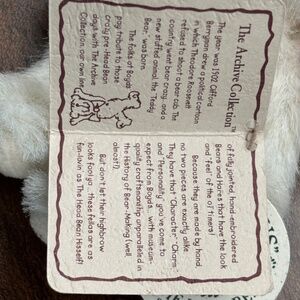 The Archive Collection™
The year was 1902. Clifford
Berryman drew a political cartoon
in which Theodore Roosevelt
refused to shoot a bear cub. The
country went bear crazy, and a
new stuffed animal, the "Teddy
Bear," was born.
The folks at Boyds
pay tribute to those
crazy pre-Head Bean
days with The Archive
Collection, our own line
of fully jointed, hand-embroidered
Bears and Hares that have the look
and "feel" of the o' timers!
Because they are made by hand
no two pieces are exactly alike.
They have that "Character" "Charm"
and "Personality" you've come to
expect from Boyds... with museum-
quality craftsmanship unparalleled in
the History of Bear-Making (well,
almost!).
But don't let their highbrow
looks fool ya - these fellas are as
fun lovin as The Head Bean Hisself!